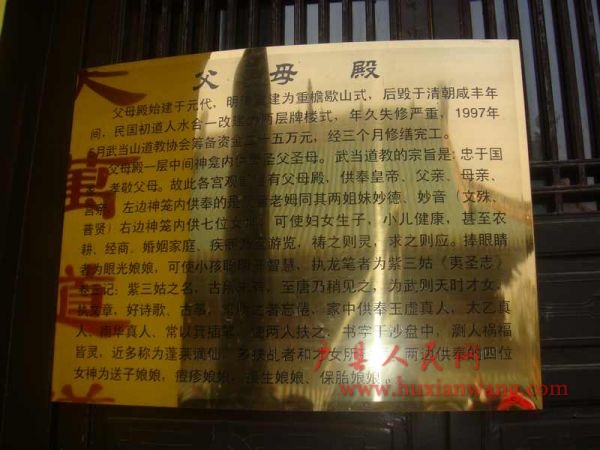 父母殿
父母殿始建于元代，明 建为重檐歇山式，后毁于清朝咸丰年
间，民国初道人水合一改建 两层牌楼式，年久失修严重，1997年
月武当山道教协会筹备资金 一五万元，经三个月修缮完工。
父母殿一层中间神龛内供 圣父圣母。武当道教的宗旨是：忠于国
孝敬父母。故此各宫观 有父母殿，供奉皇帝、父亲、母亲、
左边神笼内供奉的是 老姆同其两姐妹妙德、妙音（文殊、
普贤）右边神笼内供七位女 可使妇女生子，小儿健康，甚至农
耕、经商、婚姻家庭、疾 游览，祷之则灵，求之则应。捧眼睛
者为眼光娘娘，可使小孩聪 开智慧，执龙笔者为紫三姑《夷圣志》
记：紫三姑之名，古 至唐乃稍见之，为武则天时才女，
文章，好诗歌、古 者忘倦，家中供奉玉虚真人，太乙真
人，南华真人，常以箕插笔，使两人扶之，书字于沙盘中，测人祸福
皆灵，近多称为蓬莱谪仙 扶乩者和才女所 两边供奉的四位
女神为送子娘娘，痘疹娘娘， 生娘娘、保胎娘娘。
大
萬
道
户县人民网
www.huxianwang.com